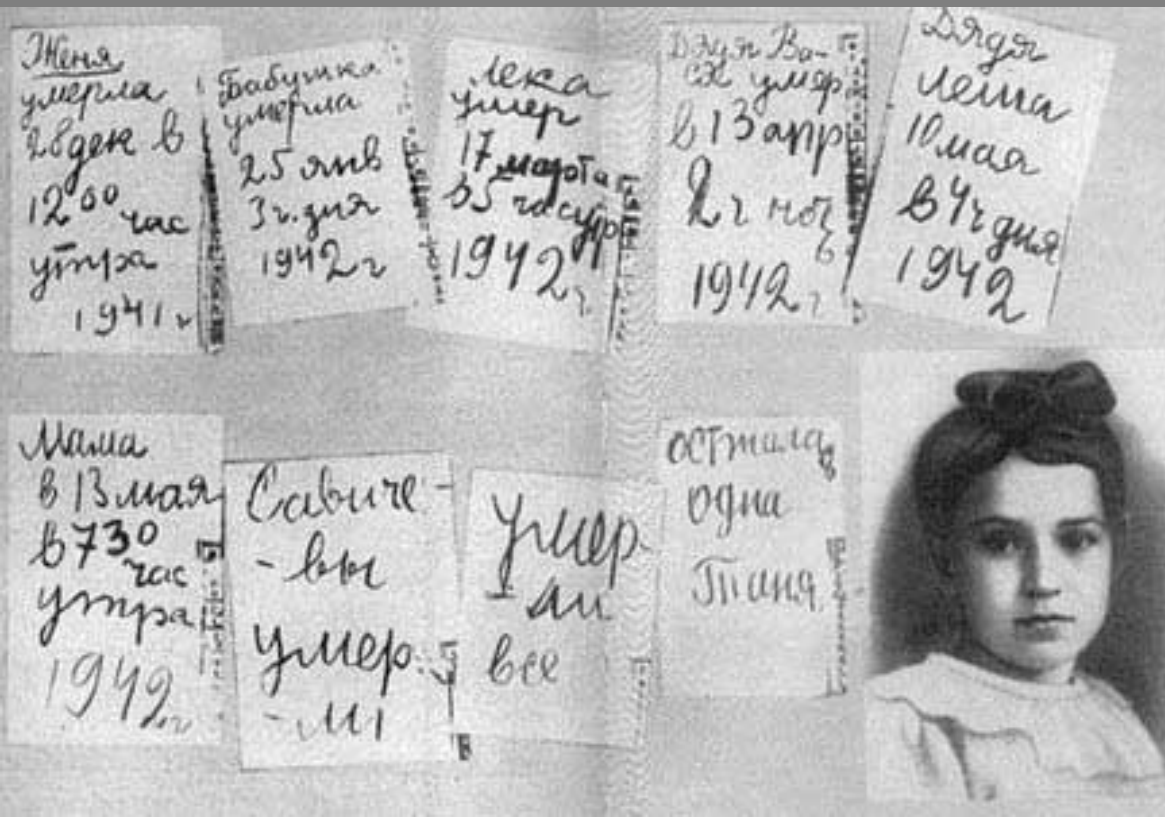 Женя
умерла
28 дек в
12 00 час
утра
1941 г
Бабушка
умерла
25 янв
3 ч. дня
1942 г
Лека
умер
17 марта
в 5 час утр
1942 г.
Дядя Ва-
ся умер
в 13 апр
2 ч ночь
1942 г
Дядя
Леша
10 мая
в 4 ч дня
1942
Мама
в 13 мая
в 7 30
час
утра
1942 г
Савиче-
-вы
умер-
-ли
Умер-
-ли
все
Осталась
одна
Таня